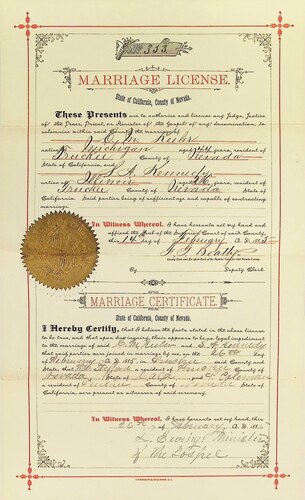 No 353
MARRIAGE LICENSE.
State of California, County of Nevada.
These Presents are to authorize and license any Judge, Justice
of the Peace, Priest, or Minister of the Gospel of any denomination, to
solemnize within said County the marriage of
native of Michigan aged 44 years, resident of
Truckee County of Nevada
State of California, and S. A. Kennedy
native of Illinois aged years, resident of
Truckee County of Nevada State of
California. Said parties being of sufficient age and capable of contracting
marriage.
In Witness Whereof, I have hereunto set my hand and
affixed the Seal of the Superior Court of said County,
this 14 day of February A. D. 1885
By Deputy Clerk.
MARRIAGE CERTIFICATE.
State of California, County of Nevada.
I Hereby Certify, that I believe the facts stated in the above license
to be true, and that upon due inquiry, there appears to be no legal impediment
to the marriage of said and S. A. Kennedy
that said parties were joined in marriage by me, on the 26th day
of February A. D. 1885, in Truckee County and
State; that a resident of Truckee County of
Nevada, State of and
a resident of Truckee County of Nevada State of
California, are present as witnesses of said ceremony.
In Witness Whereof, I have hereunto set my hand, this
26th day of February, A. D. 1885
L. Ewing Minister
of the Gospel